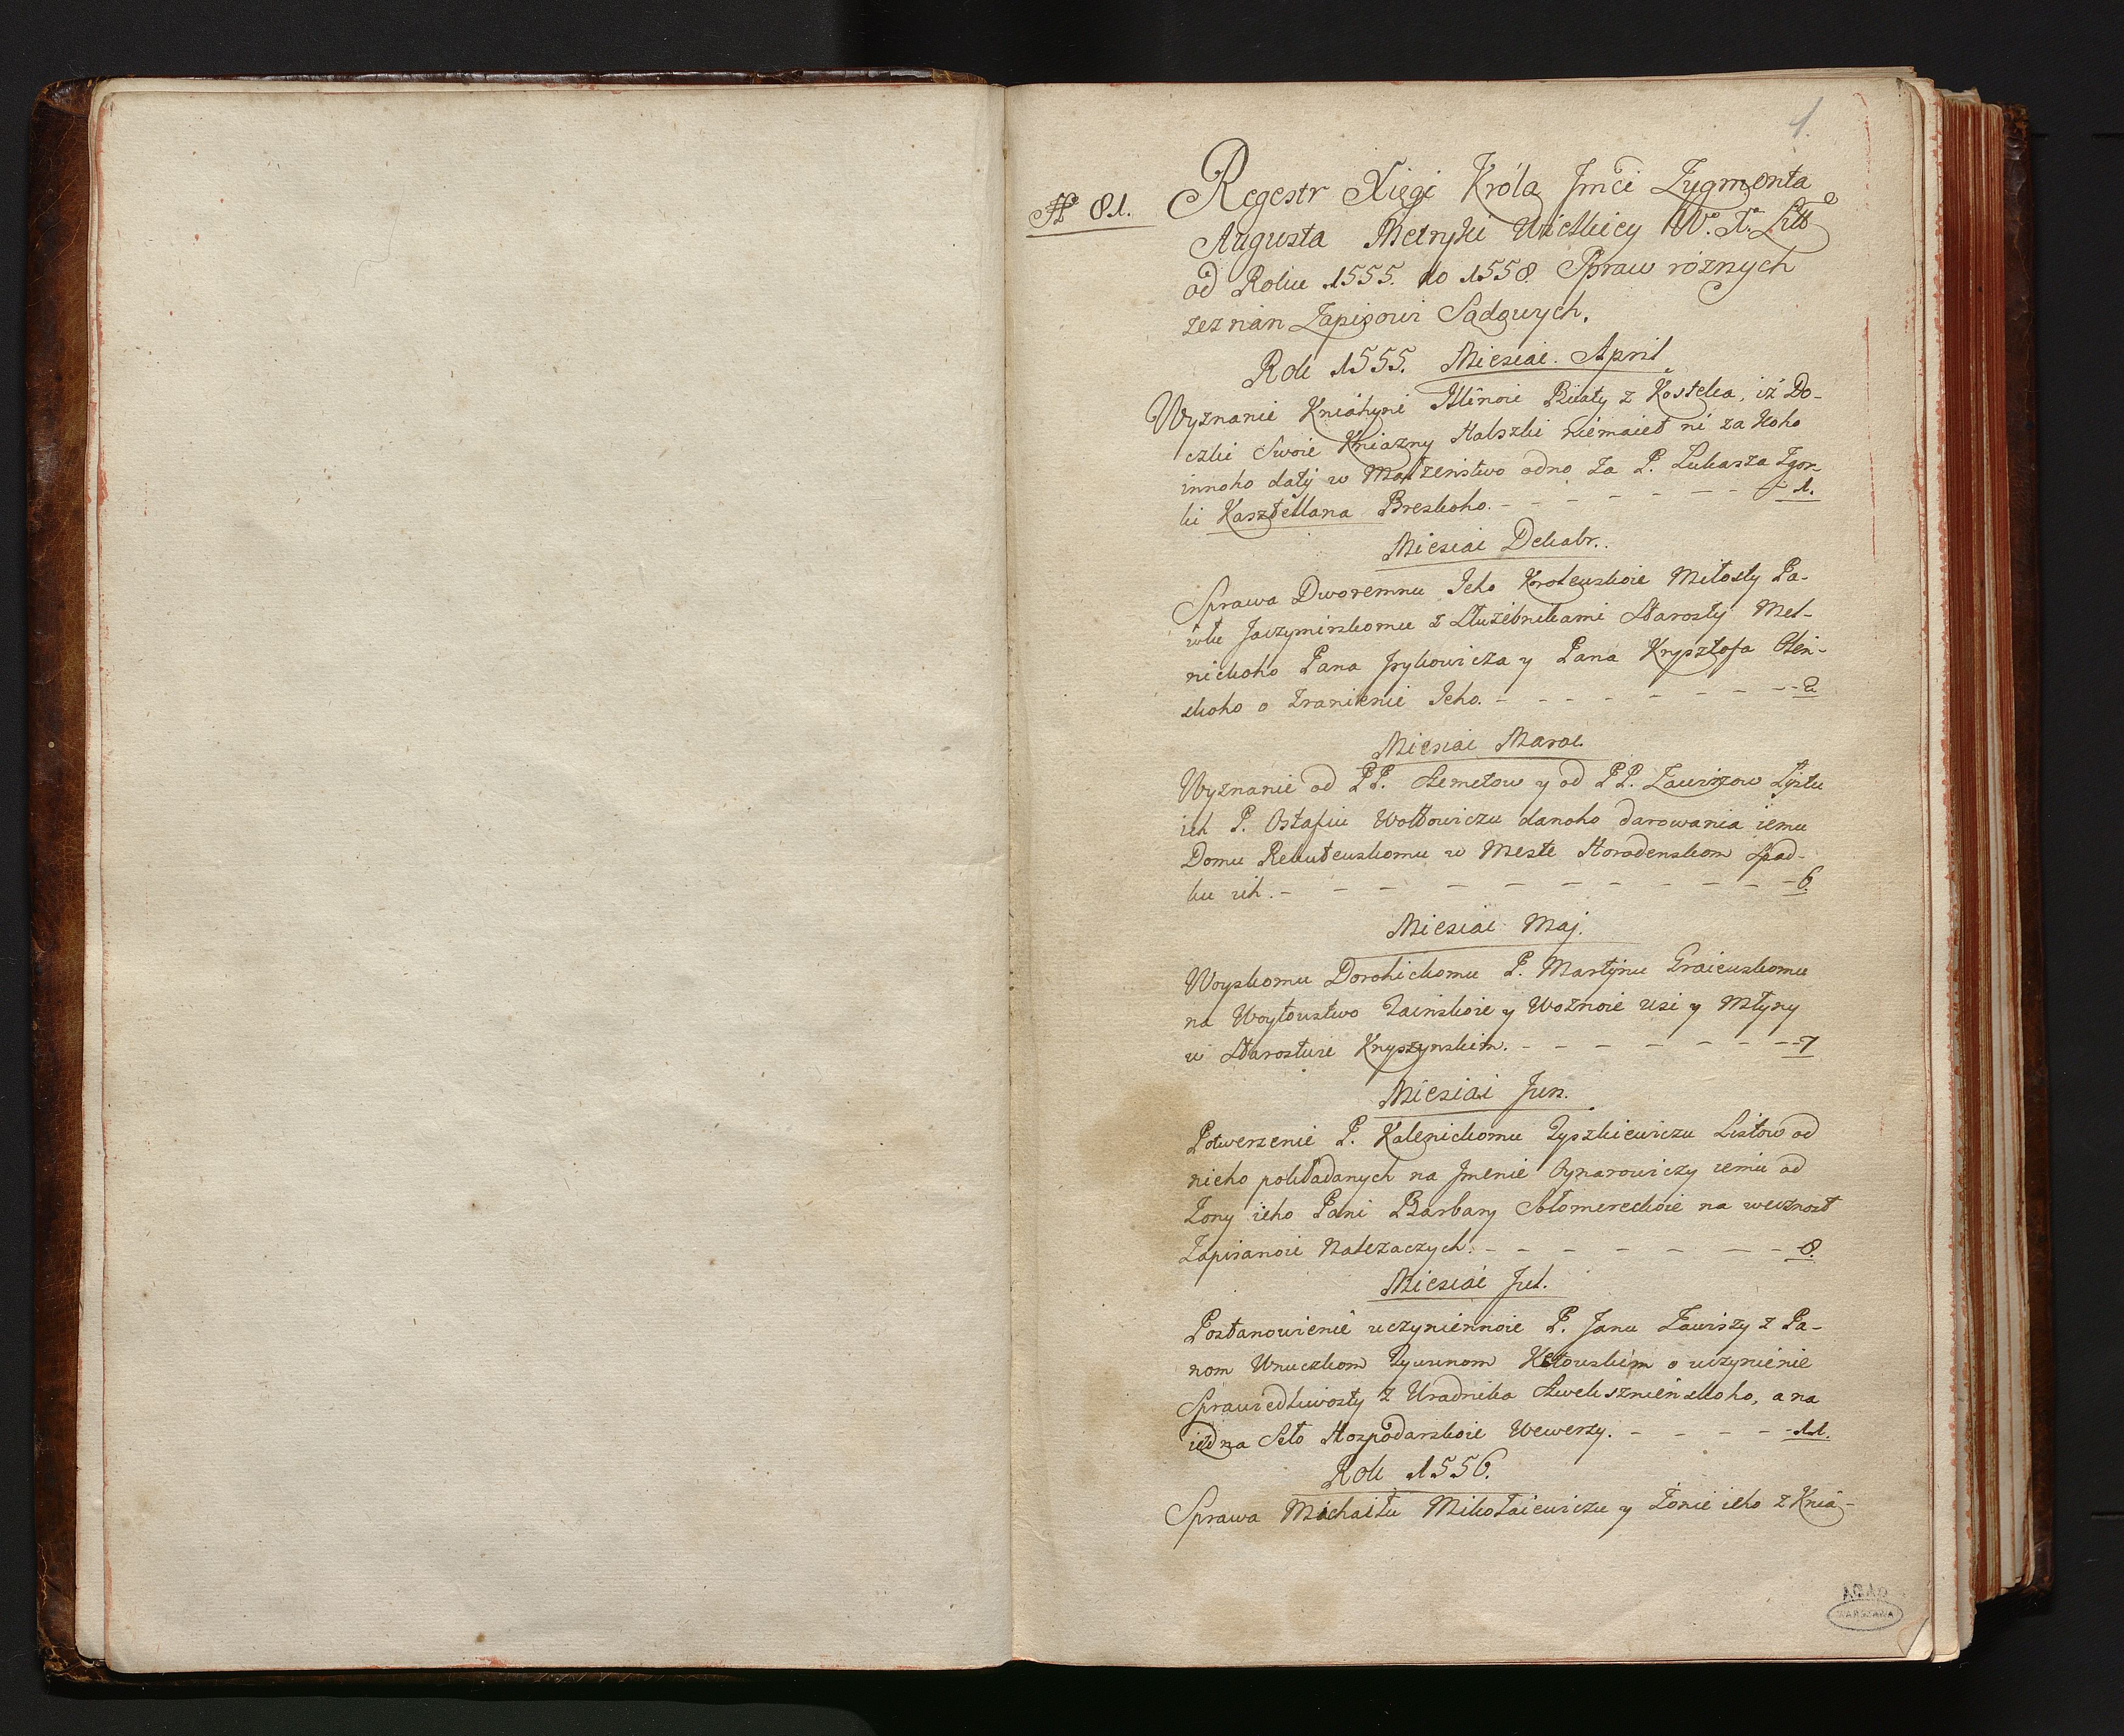 1.
№ 81. Regestr Xięgi Króla Jmći Zygmonta
Augusta Metryki Wielkiey W. X. Litto
od Roku 1555. do 1558. Spraw roznych
zeznan Zapisow Sądowych.
Rok 1555. Miesiac April
Wyznanie Kniahyni Illinoie Biaty z Kostelca, iż Do-
czki Swoie Kniazny Halszki niemaiet ni za Koho
innoho daty w Małżeństwo odno Za P. Łukasza Zgor-
ki Kasztellana Breskoho. - - - 1.
Miesiac Dekabr.
Sprawa Dworennu Jeho Krolewskoie Miłosty Pa-
włu Jaczymirskomu z Służebnikami Starosty Mel-
nickoho Pana Irykowicza y Pana Krysztofa Olen-
skoho o Zranienie Jeho. - - - 2.
Miesiac Marc.
Wyznanie od PP. Szemetow y od PP. Zawiszow Lystu
ich P. Ostafiu Wołłowiczu danoho darowania iemu
Domu Rekutewskomu w Meste Horodenskom Spad-
ku ich. - - - 6.
Miesiac Maj.
Woyskomu Dorohickomu P. Martynu Graiewskomu
na Woytowstwo Zainskoie y Woznoie Wsi y Młyny
w Starostwie Knyszynskim. - - - 7
Miesiac Jun.
Potwerzenie P. Kalenickomu Tyszkiewiczu Listow od
nieho pokładanych na Jmenie Oynarowiczy iemu od
Zony ieho Pani Barbary Sołomereckoie na wecznost
Zapisanoie Należaczych. - - - 8.
Miesiac Jul.
Postanowienie uczyniennoie P. Janu Zawiszy z Pa-
nom Wnuczkom Tywunom Retowskim o uczynienie
Sprawiedliwosty z Uradnika Szweksznienskoho, a na
Seło Hospodarskoie Wewerzy. - - - 11.
Rok 1556.
Sprawa Michaiłu Mikołaiewiczu y Żonie ieho z Knia-
AGAD
WARSZAWA